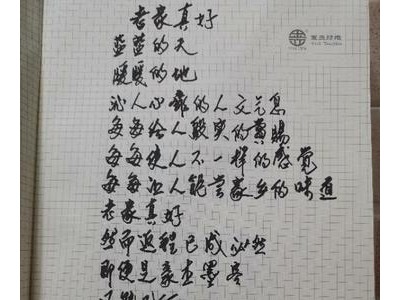 老家真好
蓝蓝的天
暖暖的地
沁人心脾的人文气息
每每给人殷实的赏赐
每每使人不一样的感觉
每每人能尝家乡的味道
老家真好
然而返程已成必然
即使是豪杰墨